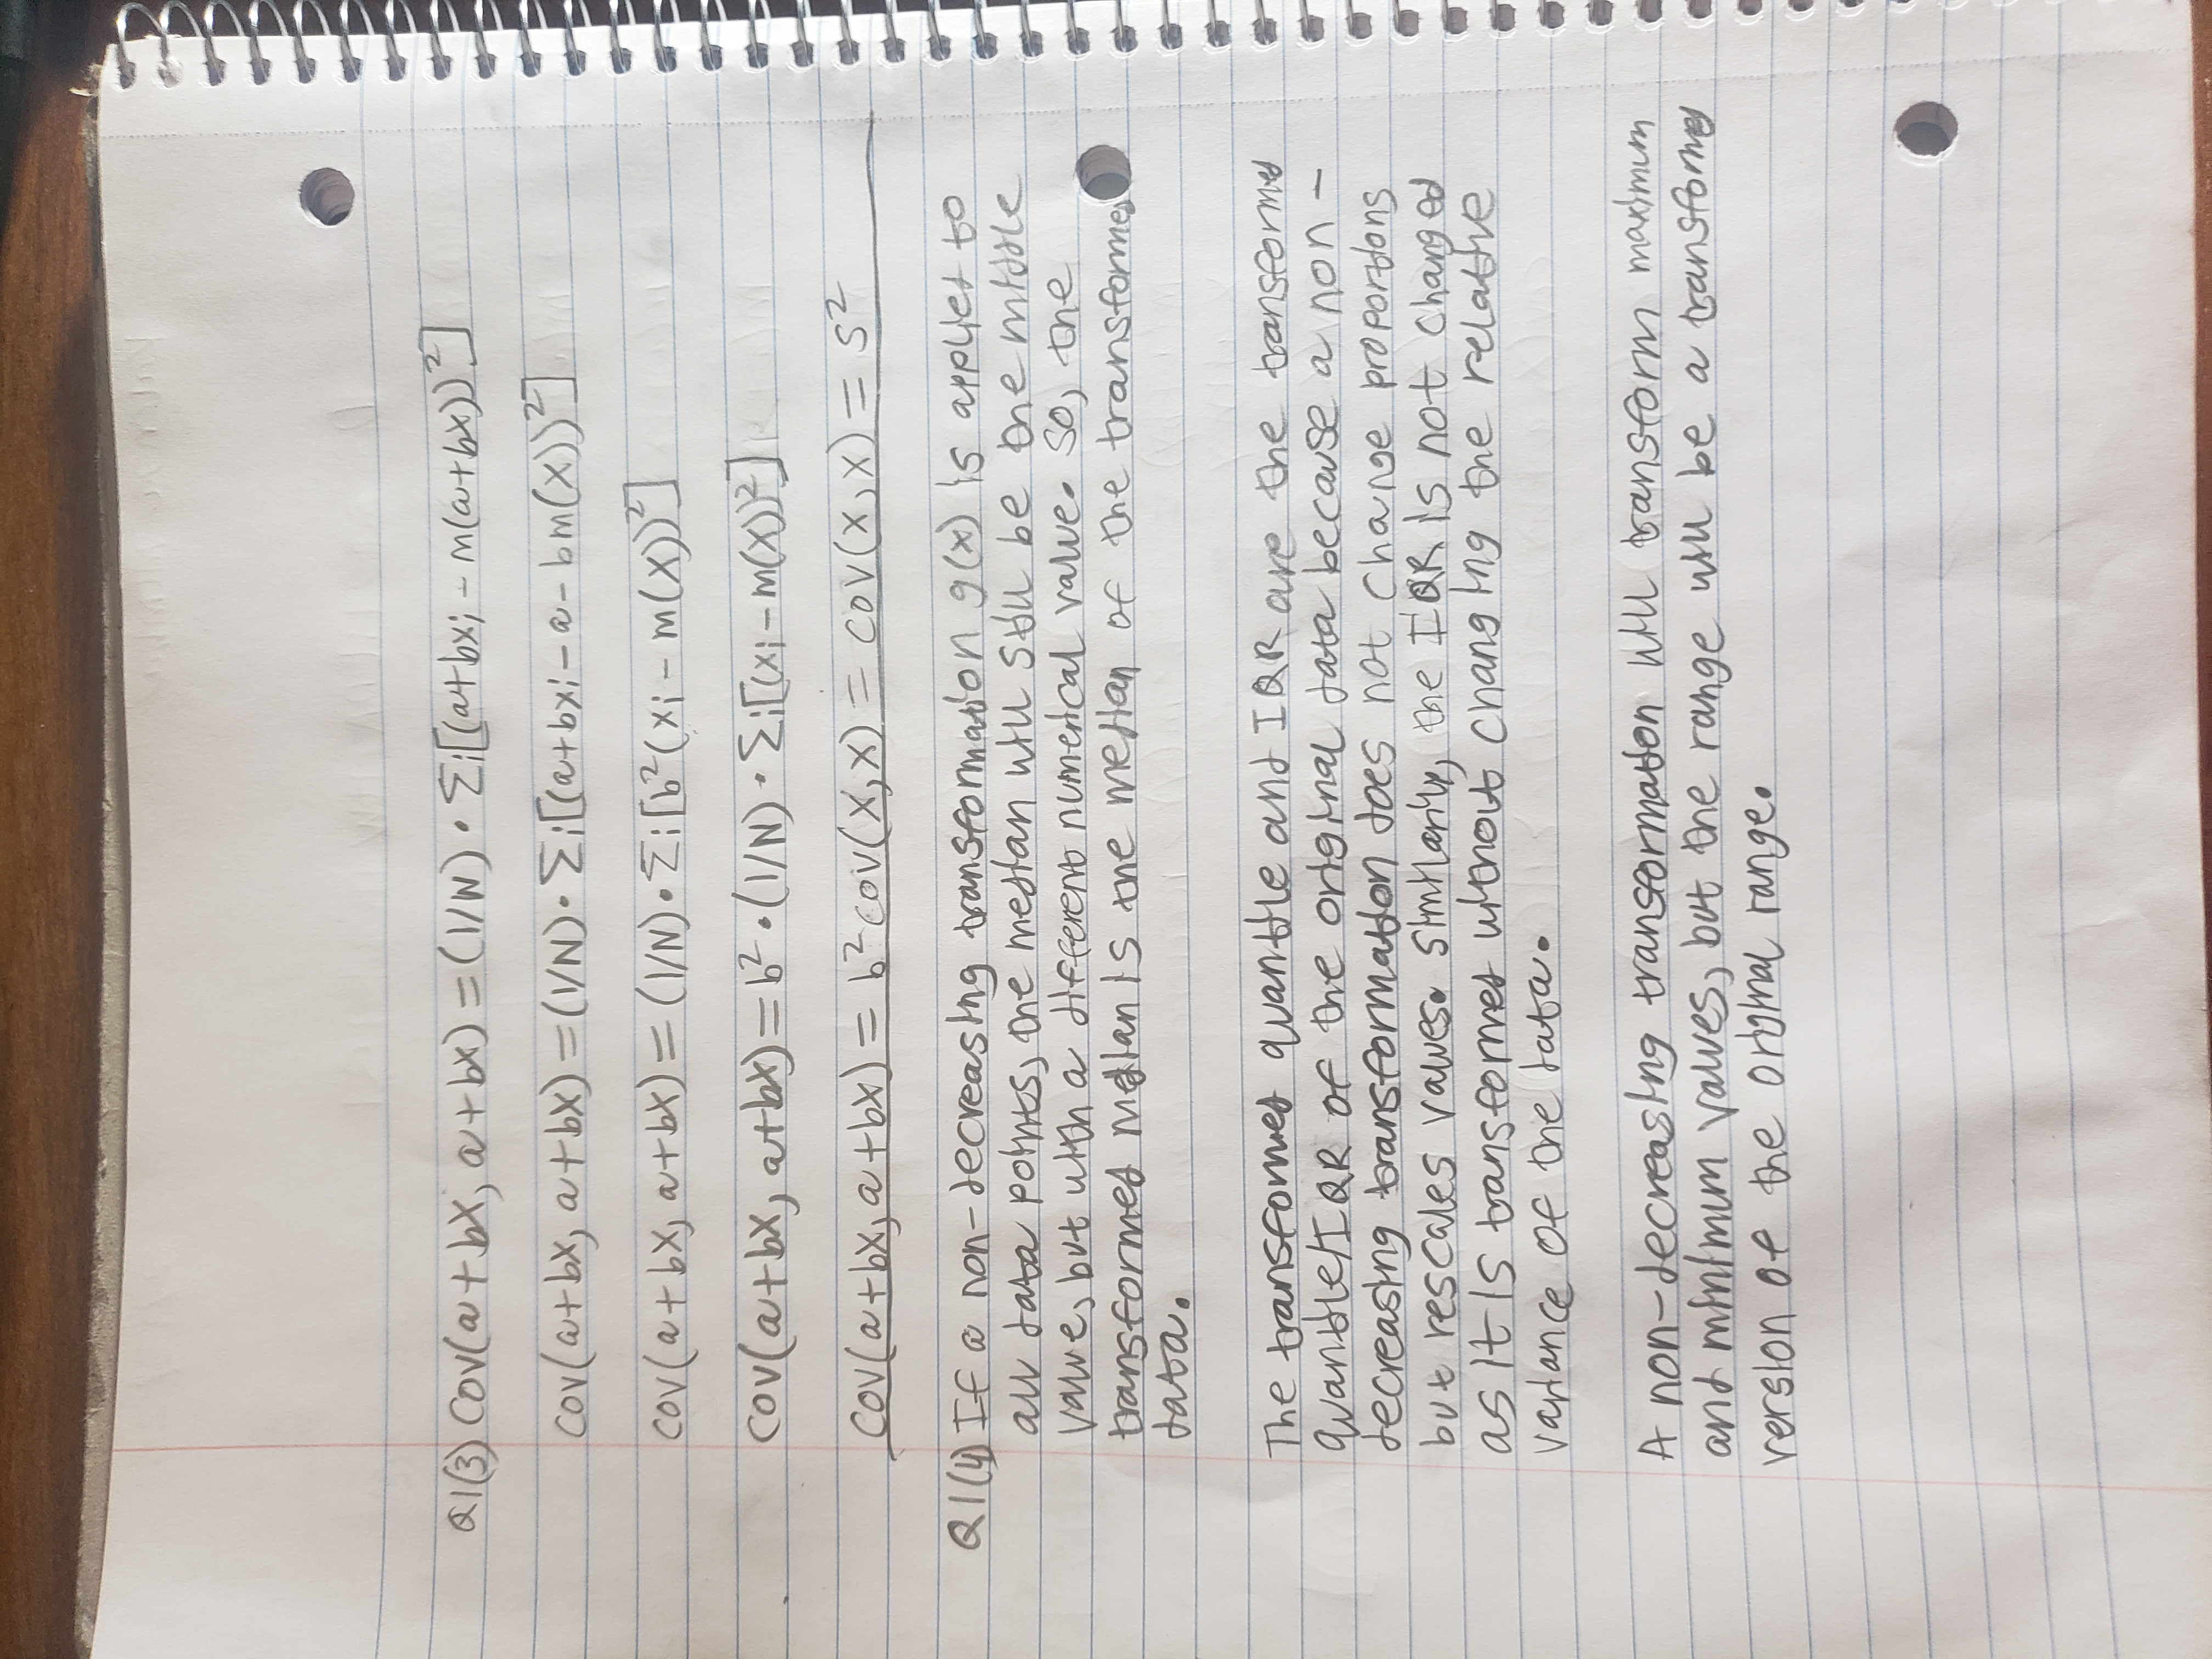 Q1(3) Cov(a+bX, a+bX) = (1/N) • Σi[(a+bxi - m(a+bX))²]
cov(a+bX, a+bX) = (1/N) • Σi[(a+bxi - a - bm(X))²]
cov(a+bX, a+bX) = (1/N) • Σi[b²(xi - m(X))²]
cov(a+bX, a+bX) = b² • (1/N) • Σi[(xi - m(X))²]
cov(a+bX, a+bX) = b² cov(X,X) = cov(X,X) = s²
Q1(4) If a non-decreasing transformation g(x) is applied to
all data points, the median will still be the middle
value, but with a different numerical value. So, the
transformed median is the median of the transformed
data.
The transformed quantile and IQR are the transformed
quantile/IQR of the original data because a non-
decreasing transformation does not change proportions
but rescales values. Similarily, the IQR is not changed
as it is transformed without changing the relative
variance of the data.
A non-decreasing transformation will transform maximum
and minimum values, but the range will be a transformed
version of the original range.